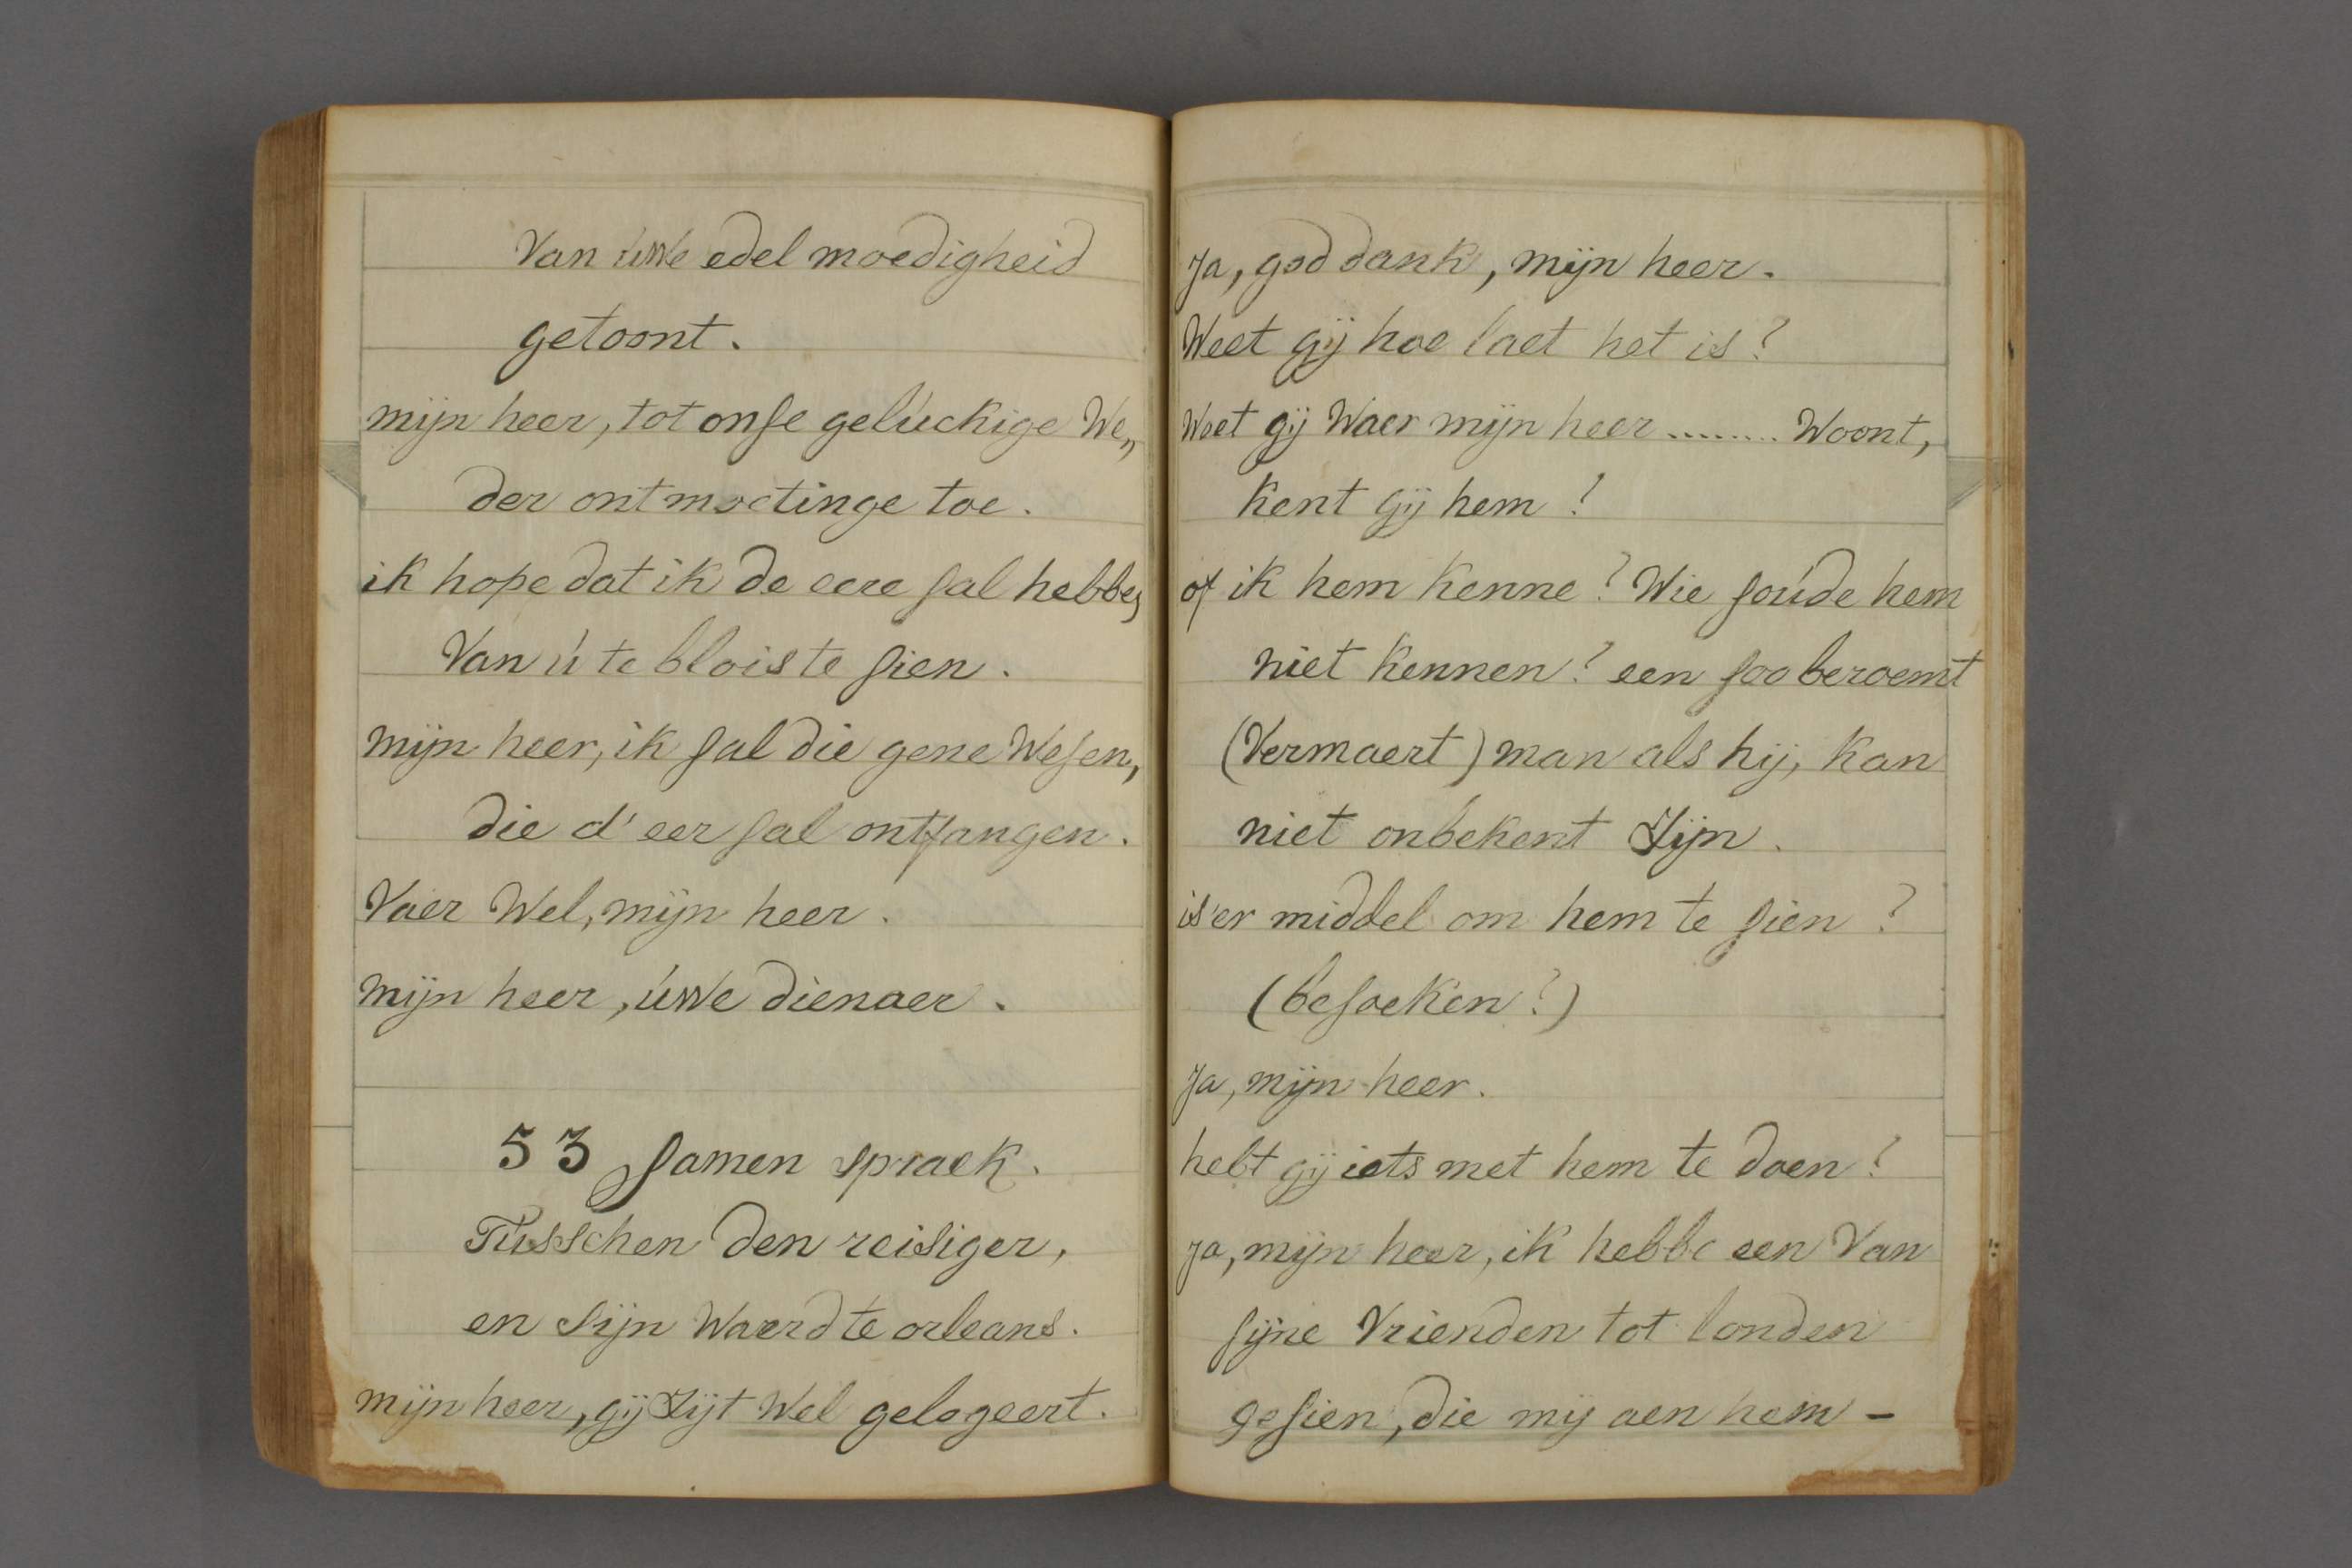 Van úwe edel moedigheid
getoont.
mijn heer, tot onse gelúckige We„
der ontmoetinge toe.
ik hope dat ik de eere sal hebben
Van ú te blois te sien.
mijn heer, ik sal die gene Wesen,
die d'eer sal ontfangen.
Vaer Wel, mijn heer.
mijn heer, úwe dienaer.
53 samen spraek.
Tússchen den reisiger,
en sijn Waerd te orleans.
mijn heer, gij zijt Wel gelogeert.
Ja, god dank, mijn heer.
Weet gij hoe laet het is?
Weet gij Waer mijn heer ........ Woont,
kent gij hem?
of ik hem kenne? Wie soúde hem
niet kennen? een soo beroemt
(Vermaert) man als hij, kan
niet onbekent zijn.
is'er middel om hem te sien?
(besoeken?)
Ja, mijn heer.
hebt gij iets met hem te doen?
ja, mijn heer, ik hebbe een Van
sijne Vrienden tot londen
gesien, die mij aen hem -